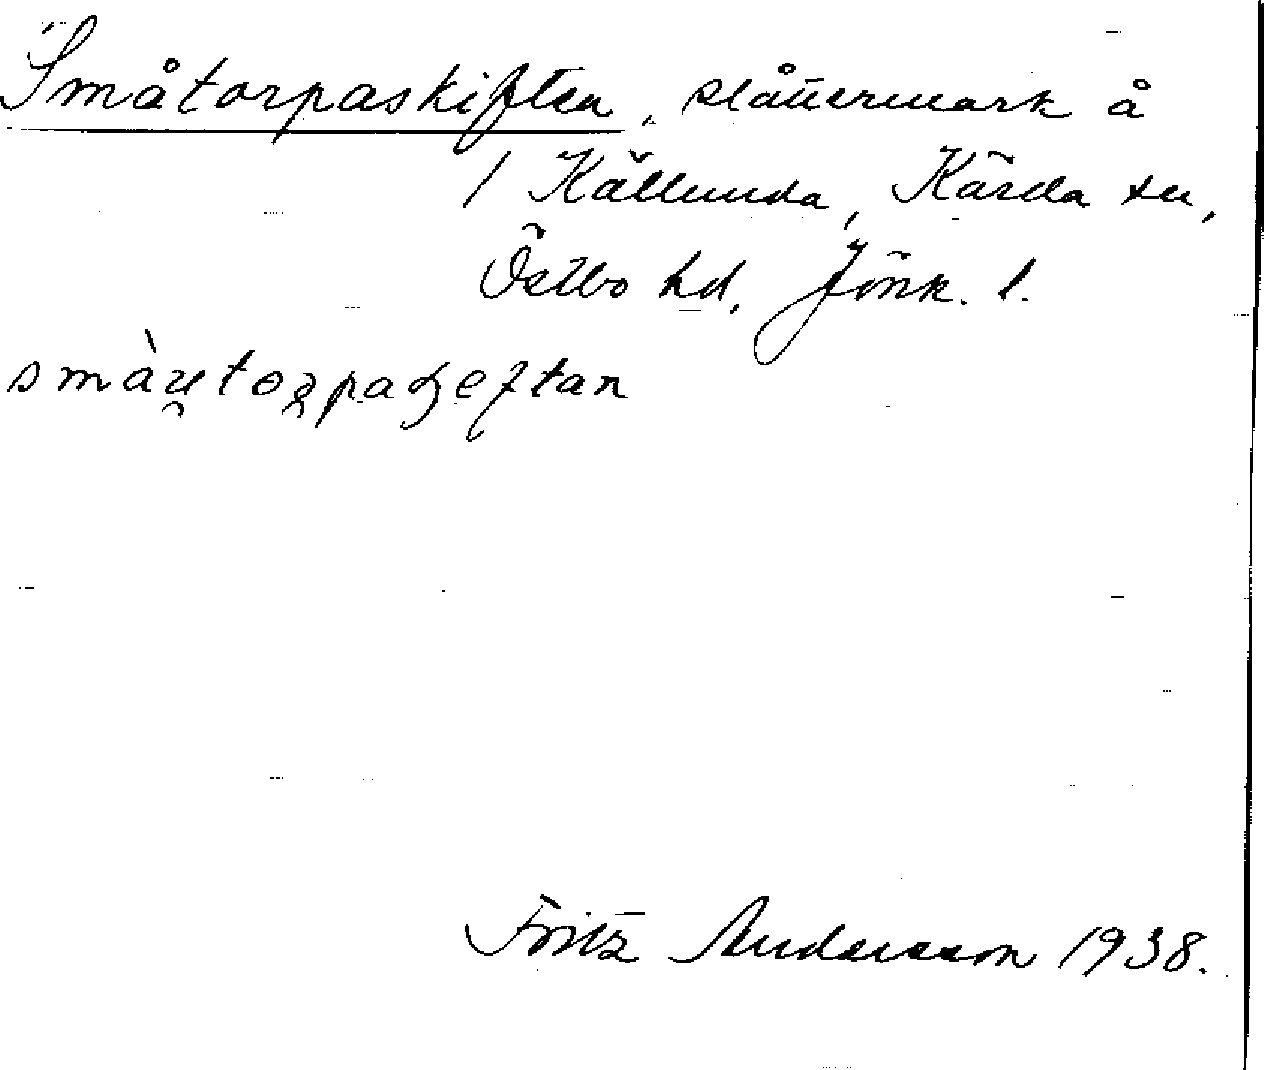 Småtorpaskiften, slåttermark å
1 Källunda, Kärda sn,
Östbo hd, Jönk. l.
Fritz Andersson 1938.